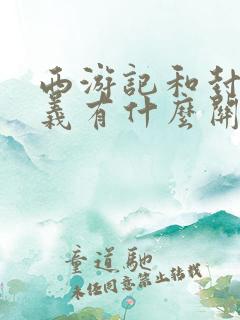 西游記和封
義有什麼關
童道馳
未經同意禁止轉載